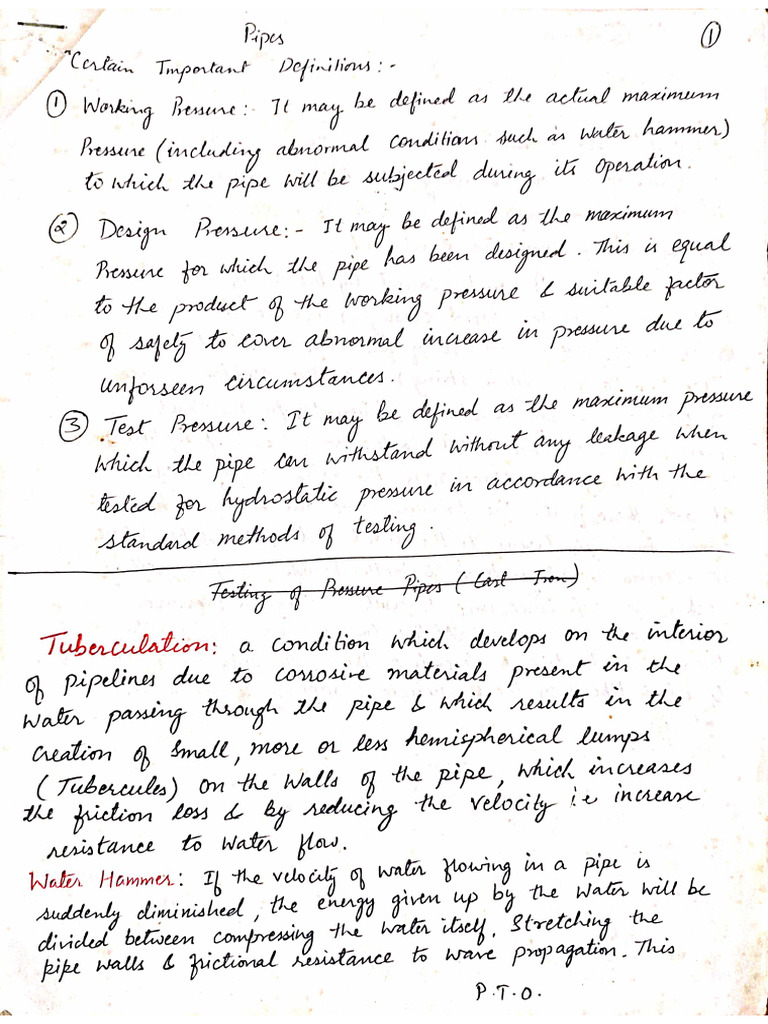 Pipes
①
Certain Important Definitions:-
① Working Pressure:- It may be defined as the actual maximum
Pressure (including abnormal conditions such as water hammer)
to which the pipe will be subjected during its operation.
② Design Pressure:- It may be defined as the maximum
Pressure for which the pipe has been designed. This is equal
to the product of the working pressure & suitable factor
of safety to cover abnormal increase in pressure due to
unforseen circumstances.
③ Test Pressure: It may be defined as the maximum pressure
which the pipe can withstand without any leakage when
tested for hydrostatic pressure in accordance with the
standard methods of testing.
Testing of Pressure Pipes (Cast Iron)
Tuberculation: a condition which develops on the interior
of pipelines due to corrosive materials present in the
water passing through the pipe & which results in the
creation of small, more or less hemispherical lumps
(Tubercules) on the walls of the pipe, which increases
the friction loss & by reducing the velocity i.e increase
resistance to water flow.
Water Hammer: If the velocity of water flowing in a pipe is
suddenly diminished, the energy given up by the water will be
divided between compressing the water itself, Stretching the
pipe walls & frictional resistance to wave propagation. This
P.T.O.